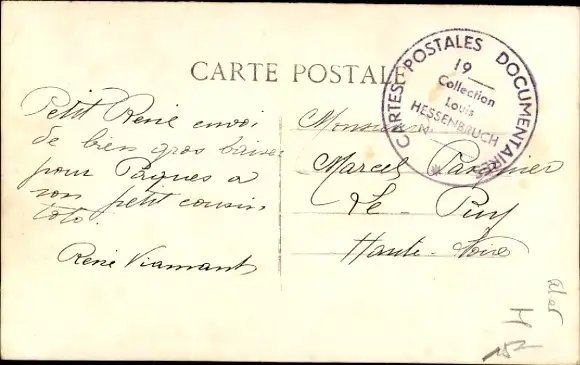 CARTE POSTALE
Petit René envoi
de bien gros baise
pour Pâques a
son petit cousin
toto.
René Viamant
Monsieur
Marcel
Le Puy
Haute-Loire
CARTES POSTALES DOCUMENTAIRES
19
Collection
Louis
HESSENBRUCH
N